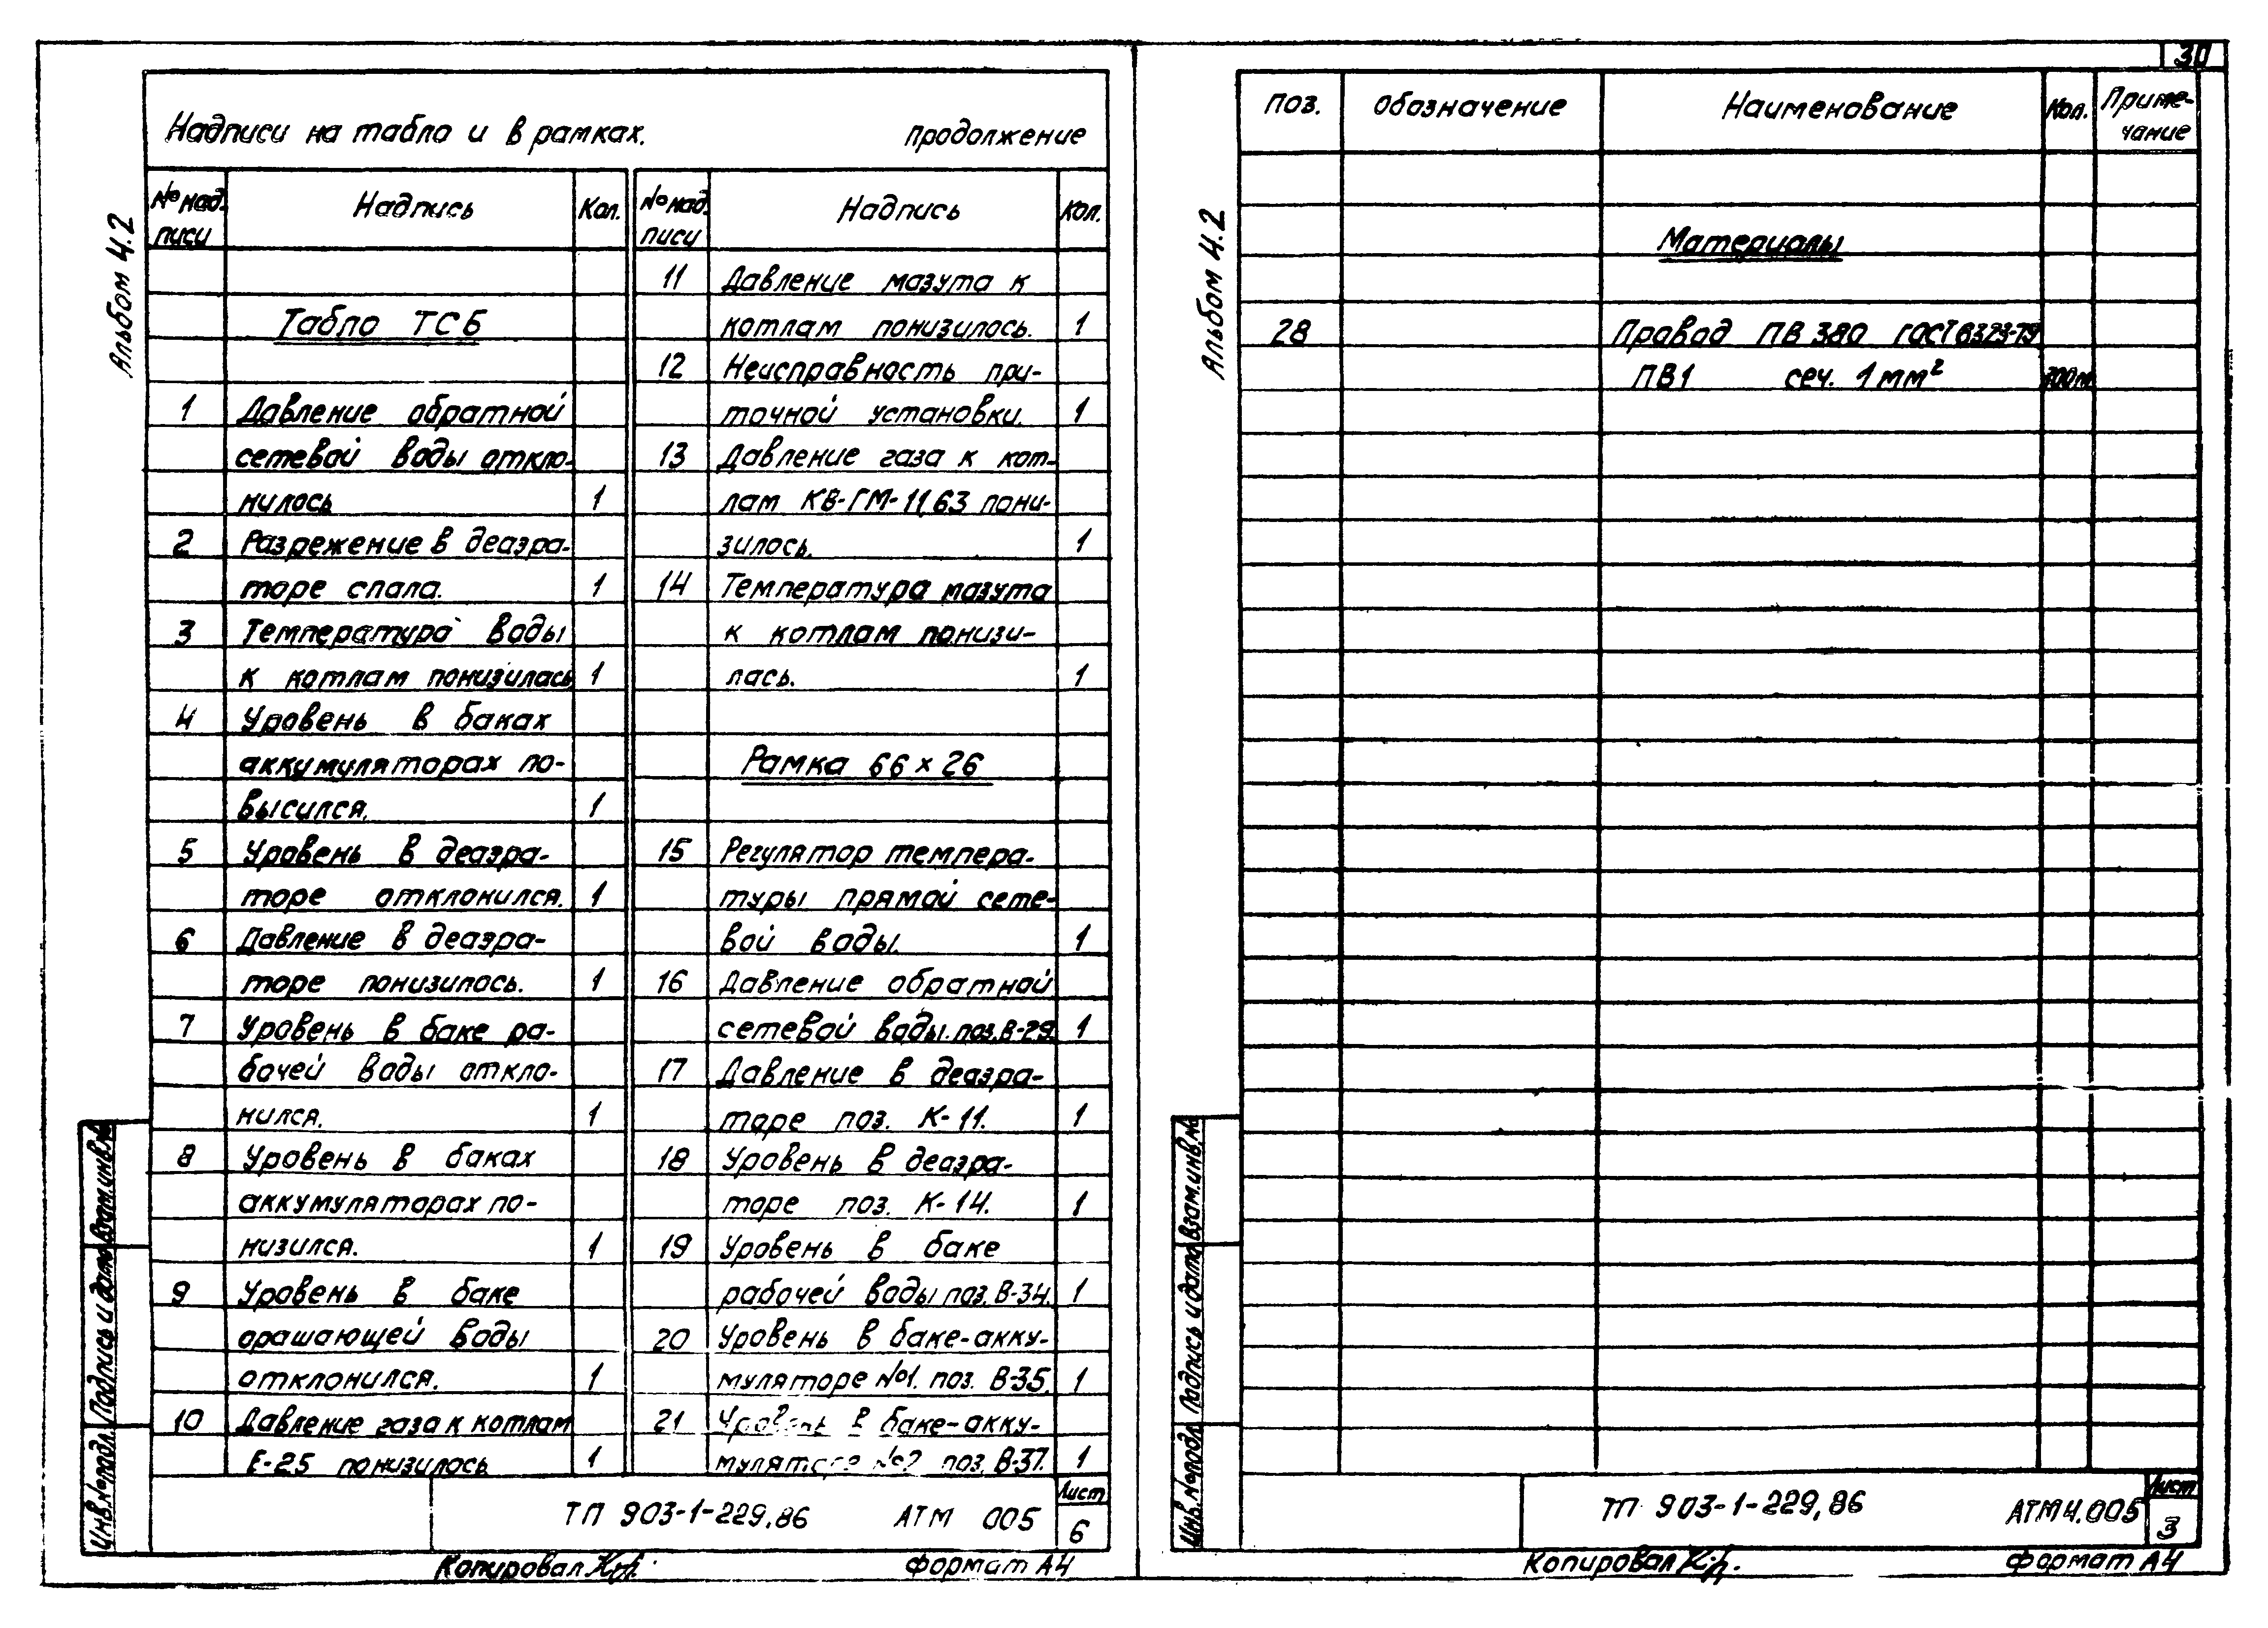 30
Альбом 4.2
Надписи на табло и в рамках. продолжение
№ над- писи Надпись Кол. № над- писи Надпись Кол.
Табло ТСБ
1 Давление обратной
сетевой воды откло-
нилось 1
2 Разрежение в деаэра-
торе спала. 1
3 Температура воды
к котлам понизилась 1
4 Уровень в баках
аккумуляторах по-
высился. 1
5 Уровень в деаэра-
торе отклонился. 1
6 Давление в деаэра-
торе понизилось. 1
7 Уровень в баке ра-
бочей воды откло-
нился. 1
8 Уровень в баках
аккумуляторах по-
низился. 1
9 Уровень в баке
орашающей воды
отклонился. 1
10 Давление газа к котлам
Е-25 понизилось 1
11 Давление мазута к
котлам понизилось. 1
12 Неисправность при-
точной установки. 1
13 Давление газа к кот-
лам КВ-ГМ-11,63 пони-
зилось. 1
14 Температура мазута
к котлам понизи-
лась. 1
Рамка 66 х 26
15 Регулятор темпера-
туры прямой сете-
вой воды. 1
16 Давление обратной
сетевой воды. поз. В-29. 1
17 Давление в деаэра-
торе поз. К-11. 1
18 Уровень в деаэра-
торе поз. К-14. 1
19 Уровень в баке
рабочей воды поз. В-34. 1
20 Уровень в баке-акку-
муляторе №1. поз. В-35. 1
21 Уровень в баке-акку-
муляторе №2 поз. В-37. 1
Инв.№подл. Подпись и дата Взам.инв.№
ТП 903-1-229.86 АТМ 005 Лист 6
Копировал формат А4
Альбом 4.2
поз. Обозначение Наименование Кол. Приме-
чание
Материалы
28 Провод ПВ 380 ГОСТ 6323-79
ПВ1 сеч. 1 мм²
Инв.№подл. Подпись и дата Взам.инв.№
ТП 903-1-229.86 АТМ4.005 Лист 3
Копировал формат А4